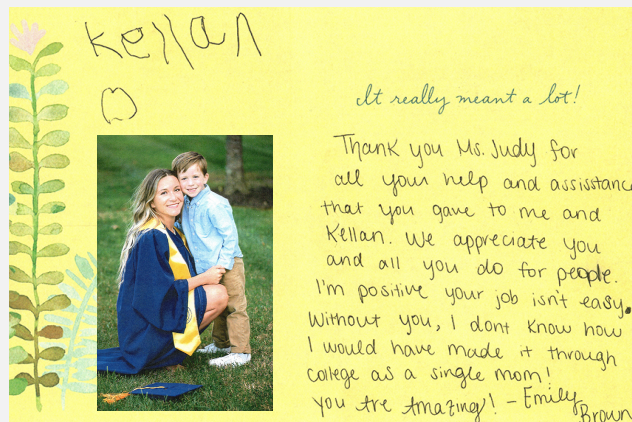 Kellan
It really meant a lot!
Thank you Ms. Judy for
all your help and assisstance
that you gave to me and
Kellan. We appreciate you
and all you do for people.
I'm positive your job isn't easy.
Without you, I dont know how
I would have made it through
college as a single mom!
you are amazing! - Emily
Brown